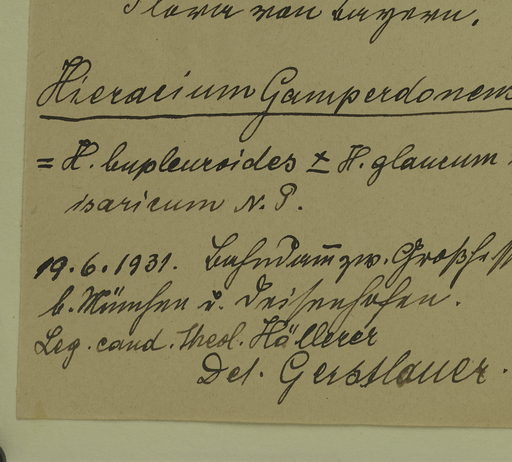 Flora von Bayern.
Hieracium Gamperdonens
= H. bupleuroides ± H. glaucum
isaricum N. P.
19.6.1931. Bahndamm zw. Großhess
b. München u. Deisenhofen.
Leg. cand. theol. Hällerer
Det. Gerstlauer.